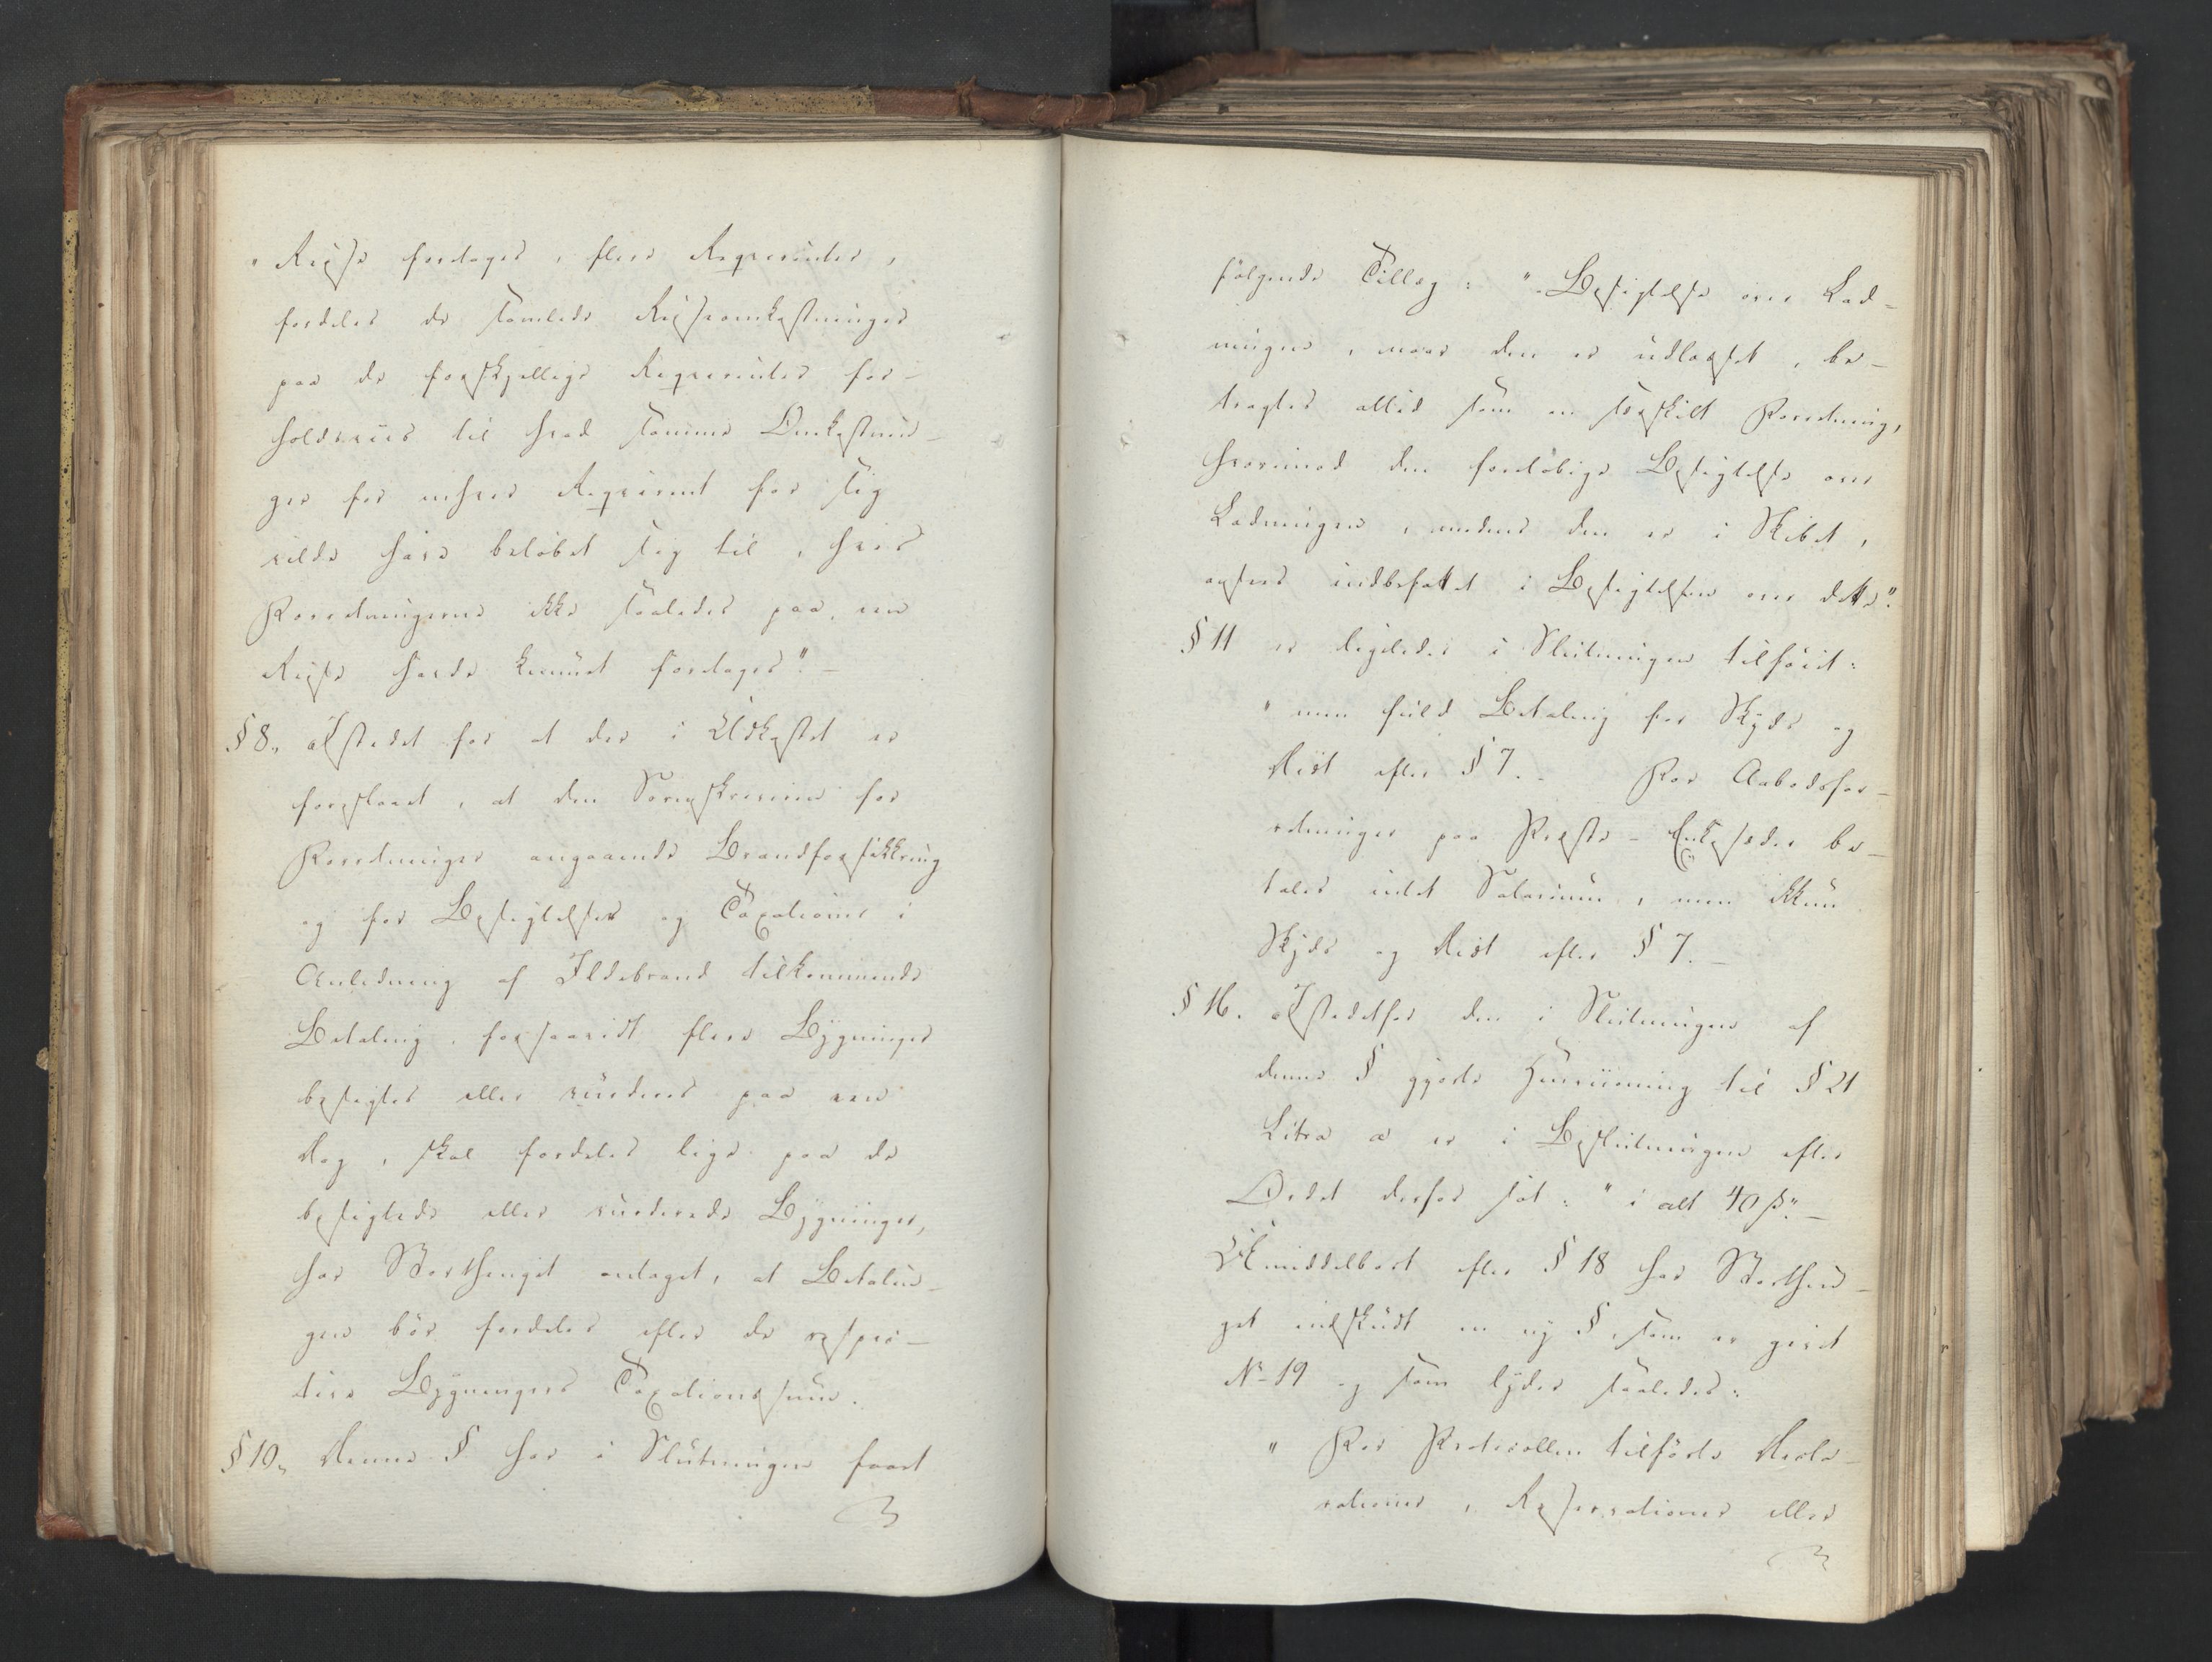 "Reise foretages, flere Reqvirenter,
fordeles de samlede Reiseomkostninger
paa de forskjellige Reqvirenter for-
holdsviis til hvad samme Omkostnin-
ger for enhver Reqvirent for sig
vilde have beløbet sig til, hvis
Forretningerne ikke saaledes paa een
Reise havde kunnet foretages". —
§ 8., Istedet for at der i Udkastet er
foreslaaet, at den Sorenskriveren for
Forretninger angaaende Brandforsikkring
og for Besigtelser og Taxationer i
Anledning af Ildebrand tilkommende
Betaling, forsaavidt flere Bygninger
besigtes eller vurderes paa een
Dag, skal fordeles lige paa de
besigtede eller vurderede Bygninger,
har Storthinget antaget, at Betalin-
gen bør fordeles efter de respec-
tive Bygningers Taxationssum.
§ 10., Denne § har i Slutningen faaet
følgende Tillæg: "Besigtelse over Lad-
ningen, naar den er udlosset, be-
tragtes altid som en særskilt Forretning,
hvorimod den foreløbige Besigtelse over
Ladningen, medens den er i Skibet,
ansees indbefattet i Besigtelsen over dette".
§ 11 er ligeledes i Slutningen tilføiet:
"men fuld Betaling for Skyds og
Diæt efter § 7. For Aabodsfor-
retninger paa Præste-Enkesæder be-
tales intet Salarium, men ikkun
Skyds og Diæt efter § 7. —
§ 16. Istedetfor den i Slutningen af
denne § gjorte Henviisning til § 21
Litra a er i Beslutningen efter
Ordet derfor sat: "i alt 40 ß". —
Umiddelbart efter § 18 har Storthin-
get indskudt en ny §, som er givet
No 19 og som lyder saaledes:
" For Protocollen tilførte Decla-
rationer, Reservationer eller